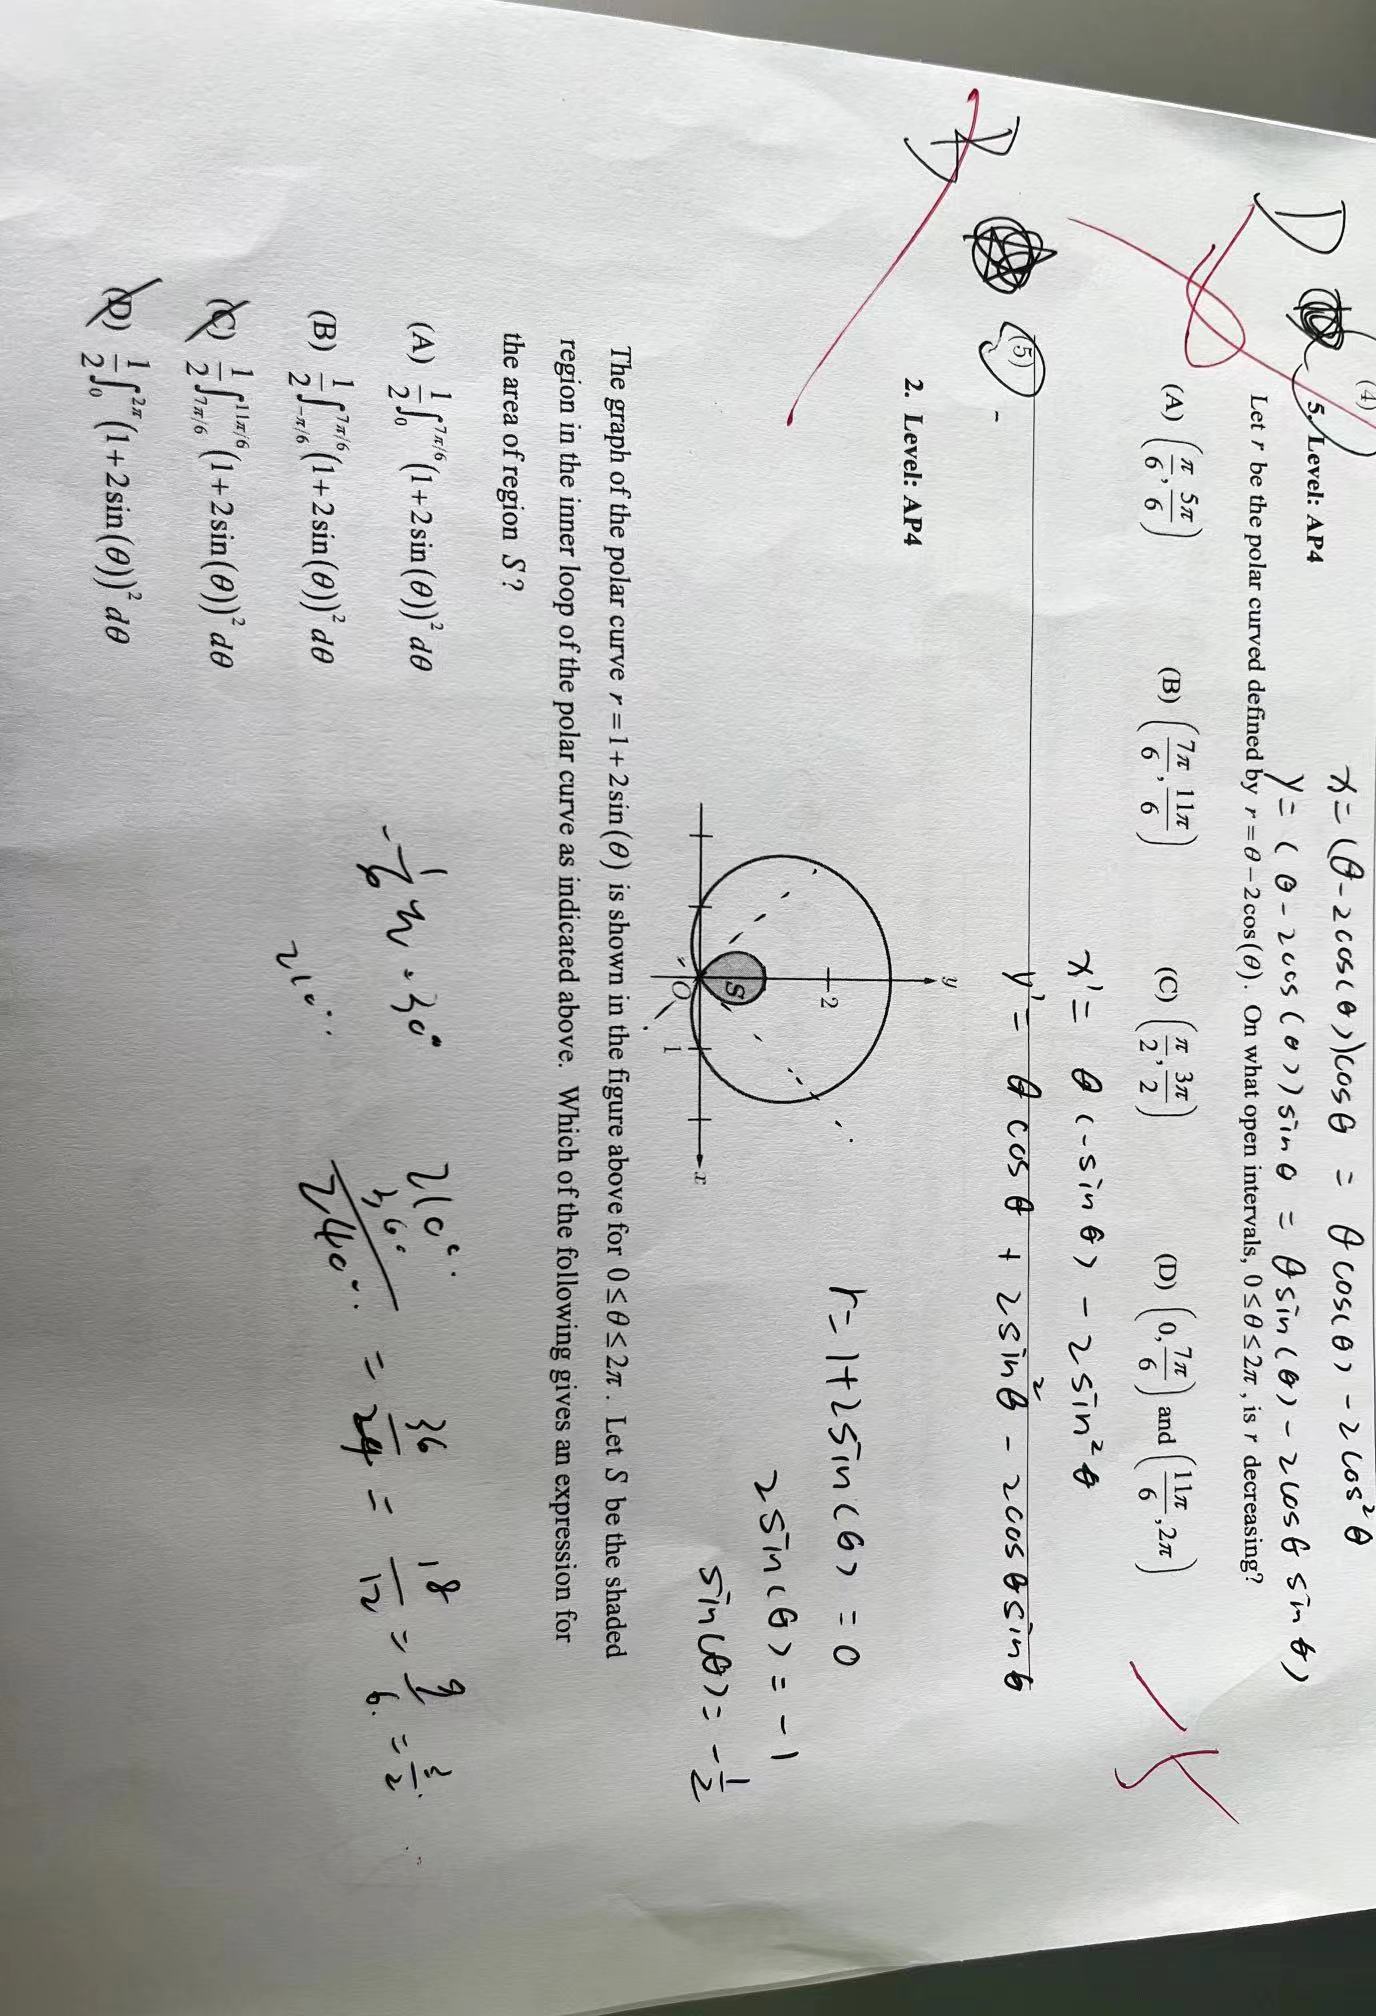 x = (θ - 2cos(θ))cosθ = θcos(θ) - 2cos²θ
(4)
y = (θ - 2cos(θ))sinθ = θsin(θ) - 2cosθsinθ)
D
5. Level: AP4
Let r be the polar curved defined by r = θ - 2cos(θ). On what open intervals, 0 ≤ θ ≤ 2π, is r decreasing?
(A) (π/6, 5π/6) (B) (7π/6, 11π/6) (C) (π/2, 3π/2) (D) (0, 7π/6) and (11π/6, 2π)
x' = θ(-sinθ) - 2sin²θ
y' = θcosθ + 2sin²θ - 2cosθsinθ
(5)
2. Level: AP4
r = 1+2sin(θ) = 0
2sin(θ) = -1
sin(θ) = -1/2
y
2
S
O
1
x
The graph of the polar curve r = 1 + 2sin(θ) is shown in the figure above for 0 ≤ θ ≤ 2π. Let S be the shaded
region in the inner loop of the polar curve as indicated above. Which of the following gives an expression for
the area of region S?
(A) 1/2 ∫_0^{7π/6} (1+2sin(θ))² dθ
(B) 1/2 ∫_{-π/6}^{7π/6} (1+2sin(θ))² dθ
(C) 1/2 ∫_{7π/6}^{11π/6} (1+2sin(θ))² dθ
(D) 1/2 ∫_0^{2π} (1+2sin(θ))² dθ
210°
240° = 36/24 = 18/12 = 9/6 = 3/2
210°